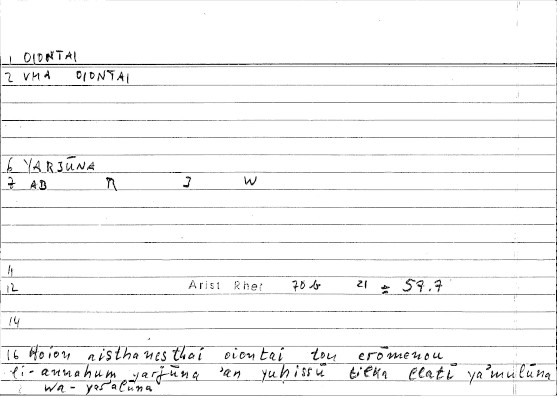 1 OIONTAI
2 VHA OIONTAI
6 YARJŪNA
7 AB R J W
11
12 Arist Rhet 70b 21 = 59.7
14
16 Hoion aisthanesthai oiontai tou erōmenou
li-annahum yarjūna 'an yuḥissū tilka llatī ya'mulūna
wa-yas'alūna